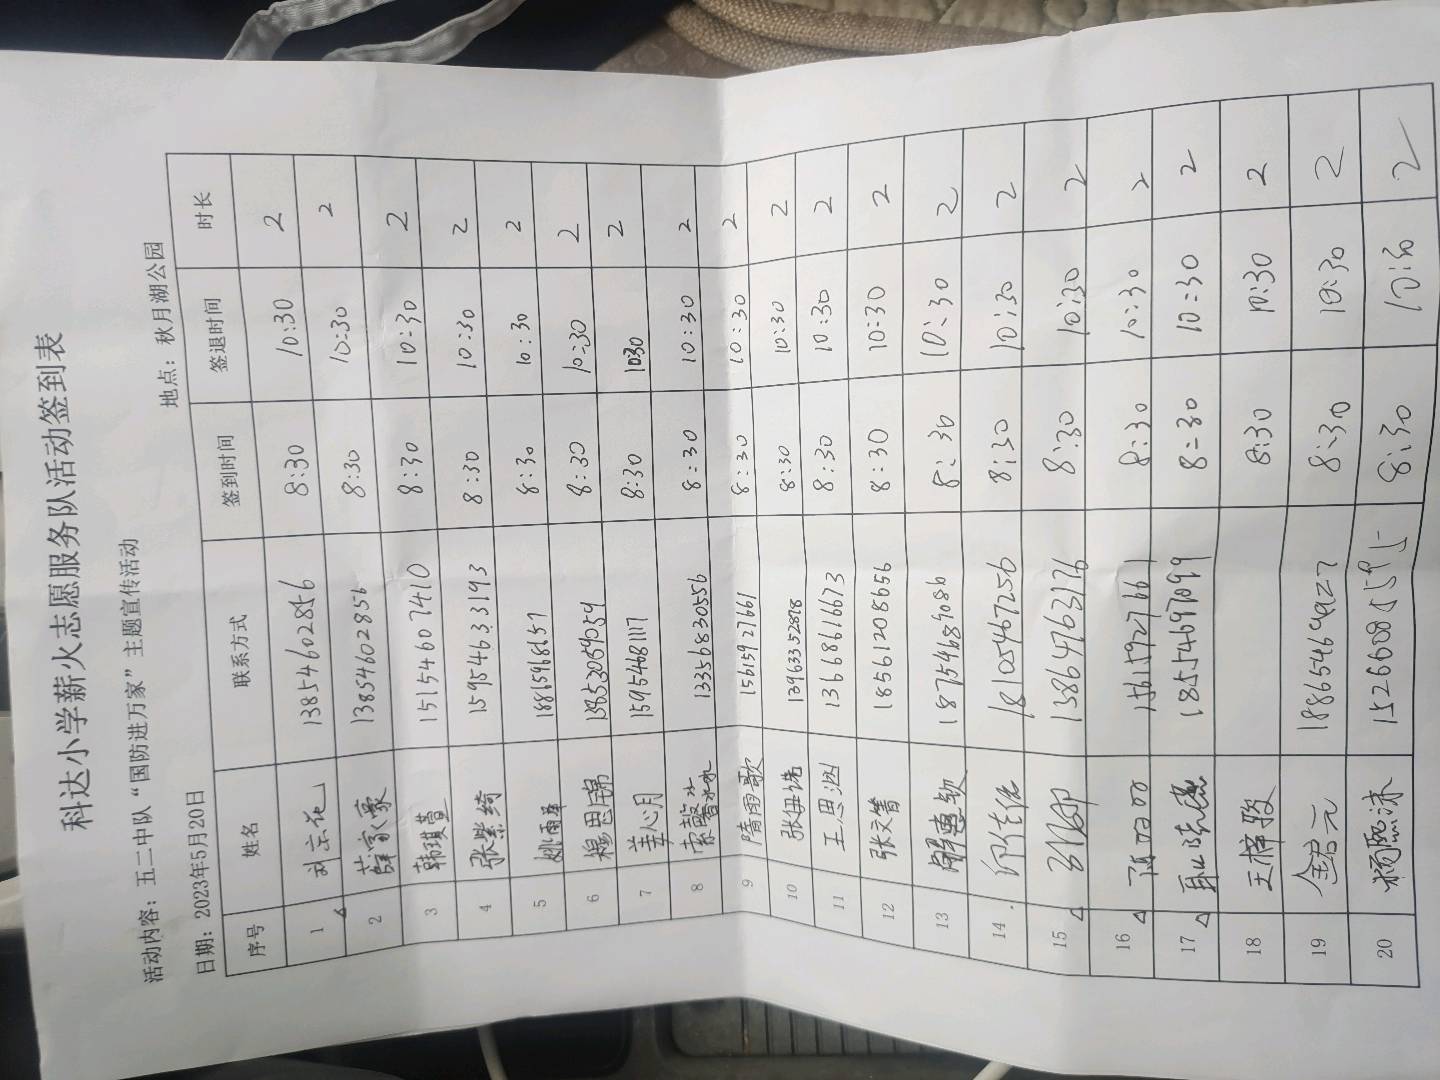 科达小学薪火志愿服务队活动签到表
活动内容：五二中队“国防进万家”主题宣传活动
日期：2023年5月20日 地点：秋月湖公园
序号 姓名 联系方式 签到时间 签退时间 时长
1 刘宗花 13854602856 8:30 10:30 2
2 薛家豪 13854602856 8:30 10:30 2
3 韩琪萱 15154607410 8:30 10:30 2
4 张紫绮 15954633193 8:30 10:30 2
5 姚雨 18865968657 8:30 10:30 2
6 穆思锦 8:30 10:30 2
7 姜心月 15954681117 8:30 10:30 2
8 索馨冰 13356830556 8:30 10:30 2
9 隋雨歌 15615927661 8:30 10:30 2
10 张毌诺 13963352878 8:30 10:30 2
11 王思涵 13686816673 8:30 10:30 2
12 张文箐 18561208656 8:30 10:30 2
13 18754689086 8:30 10:30 2
14 18105467256 8:30 10:30 2
15 15864763176 8:30 10:30 2
16 15615927661 8:30 10:30 2
17 18554697099 8:30 10:30 2
18 王梓骏 8:30 10:30 2
19 金元 18865469927 8:30 10:30 2
20 杨熙沫 15266085595 8:30 10:30 2